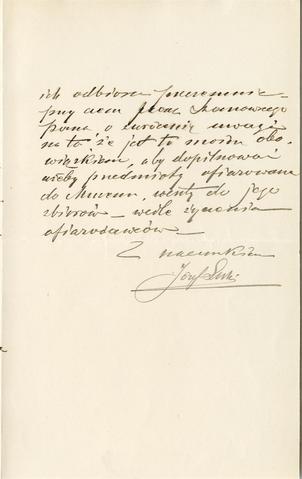 ich odbioru przezemnie
przy czem proszę Szanownego
Pana, o zwrócenie uwagi
na to że jest to moim obo-
wiązkiem, aby dopilnować
ażeby przedmioty ofiarowane
do Muzeum, weszły do jego
zbiorów – wedle życzenia
ofiarodawców –
Z szacunkiem
Józef